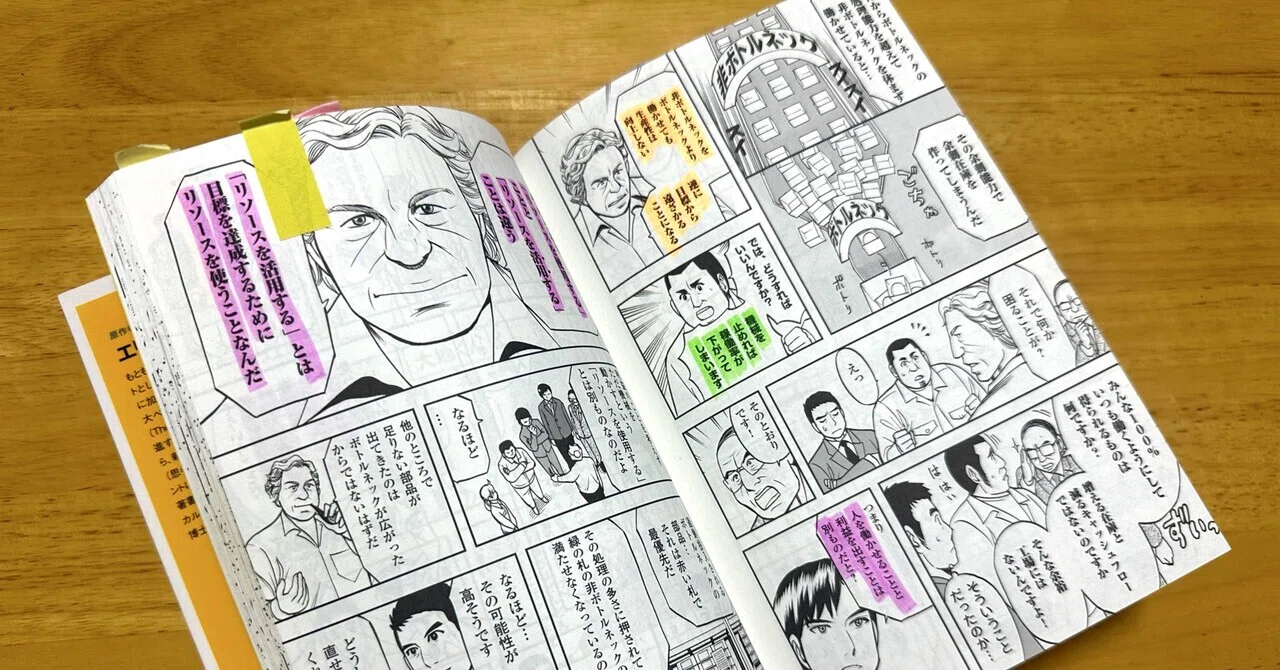 からボトルネックの
処理能力を超えて
非ボトルネックを休まず
働かせていると…
非ボトルネック
その余剰能力で
余剰在庫を
作ってしまうんだ
どちゃ
ボトルネック
ポトリ
ポトリ
非ボトルネックを
ボトルネックより
働かせても
生産性は
向上しない
逆に
目標から
遠ざかる
ことになる
では、どうすれば
いいんですか?
機械を
止めれば
稼働率が
下がって
しまいます
それで何か
困ることが?
えっ
そのとおり
です!
みんな100%
いつも働くようにして
得られるものは
何ですか?
ははい
増える在庫と
減るキャッシュフロー
ではないのですか
そんな余裕
工場には
ないんですよ!
そういうこと
だったのか…
ずいっ
つまり
人を働かせることと
利益を出すことは
別ものだと?
「リソースを活用する」
ことは違う
「リソースを活用する」とは
目標を達成するために
リソースを使うことなんだ
とは別ものなのだよ
なるほど
…
他のところで
足りない部品が
出てきたのは
ボトルネックが広がった
からではないはずだ
部品は赤い札で
それが
最優先だ
その処理の多さに押されて
緑の札の非ボトルネックの
満たせなくなっているの
なるほど…
その可能性が
高そうです
どう
直せ
原作